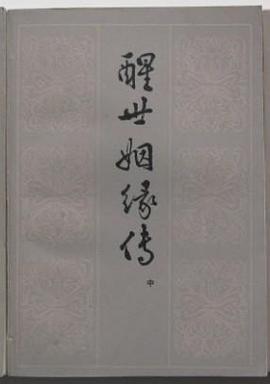 醒世姻缘传
中